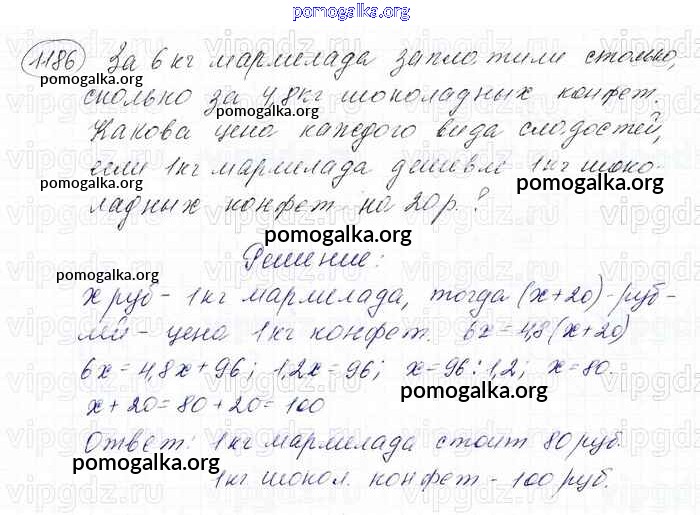 pomogalka.org
1186 За 6 кг мармелада заплотили столько,
pomogalka.org
сколько за 4,8 кг шоколадных конфет.
pomogalka.org
Какова цена каждого вида сладостей,
если 1 кг мармелада дешевле 1 кг шоко-
pomogalka.org pomogalka.org
ладных конфет на 20 р.?
pomogalka.org
Решение:
pomogalka.org
x руб – 1 кг мармелада, тогда (x+20) - руб-
ми – цена 1 кг конфет. 6x = 4,8(x+20)
pomogalka.org
6x = 4,8x + 96; 1,2x = 96; x = 96 : 1,2; x = 80.
pomogalka.org
x + 20 = 80 + 20 = 100
Ответ: 1 кг мармелада стоит 80 руб.
pomogalka.org
1 кг шокол. конфет - 100 руб.
pomogalka.org